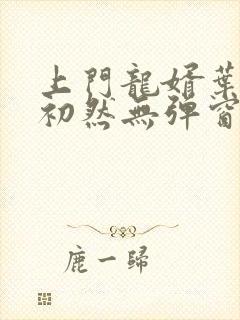 上門龍婿葉
初然無彈窗
鹿一歸